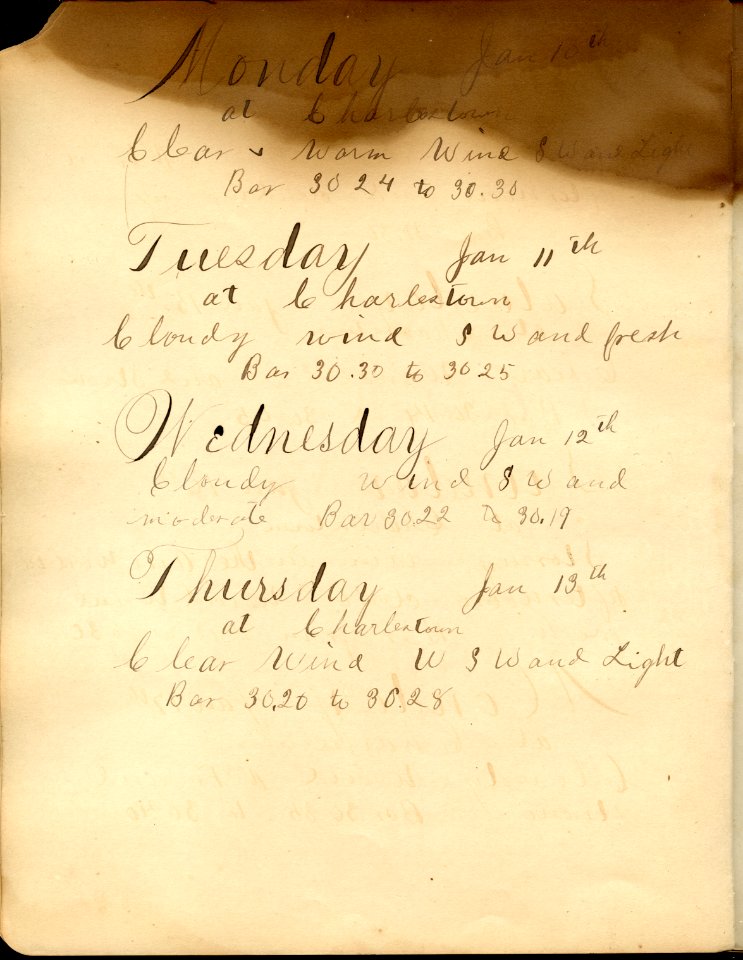 Monday Jan 10th
at Charlestown
Clear & Warm Wind S W and Light
Bar 30 24 to 30.30
Tuesday Jan 11th
at Charlestown
Cloudy wind S W and fresh
Bar 30.30 to 30 25
Wednesday Jan 12th
Cloudy wind S W and
moderate Bar 30.22 to 30.19
Thursday Jan 13th
at Charlestown
Clear Wind W S W and Light
Bar 30.20 to 30.28